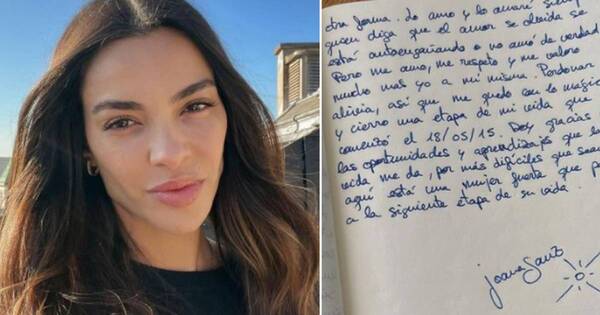 otra forma. Lo amo y lo amaré siemp
quien diga que el amor se olvida se
está autoengañando o no amó de verdad
Pero me amo, me respeto y me valoro
mucho más yo a mí misma. Perdonar
alivia, así que me quedo con lo mágic
y cierro una etapa de mi vida que
comenzó el 18/05/15. Doy gracias
las oportunidades y aprendizajes que la
vida me da, por más difíciles que sean
aquí está una mujer fuerte que p
a la siguiente etapa de su vida.
Joana Sanz